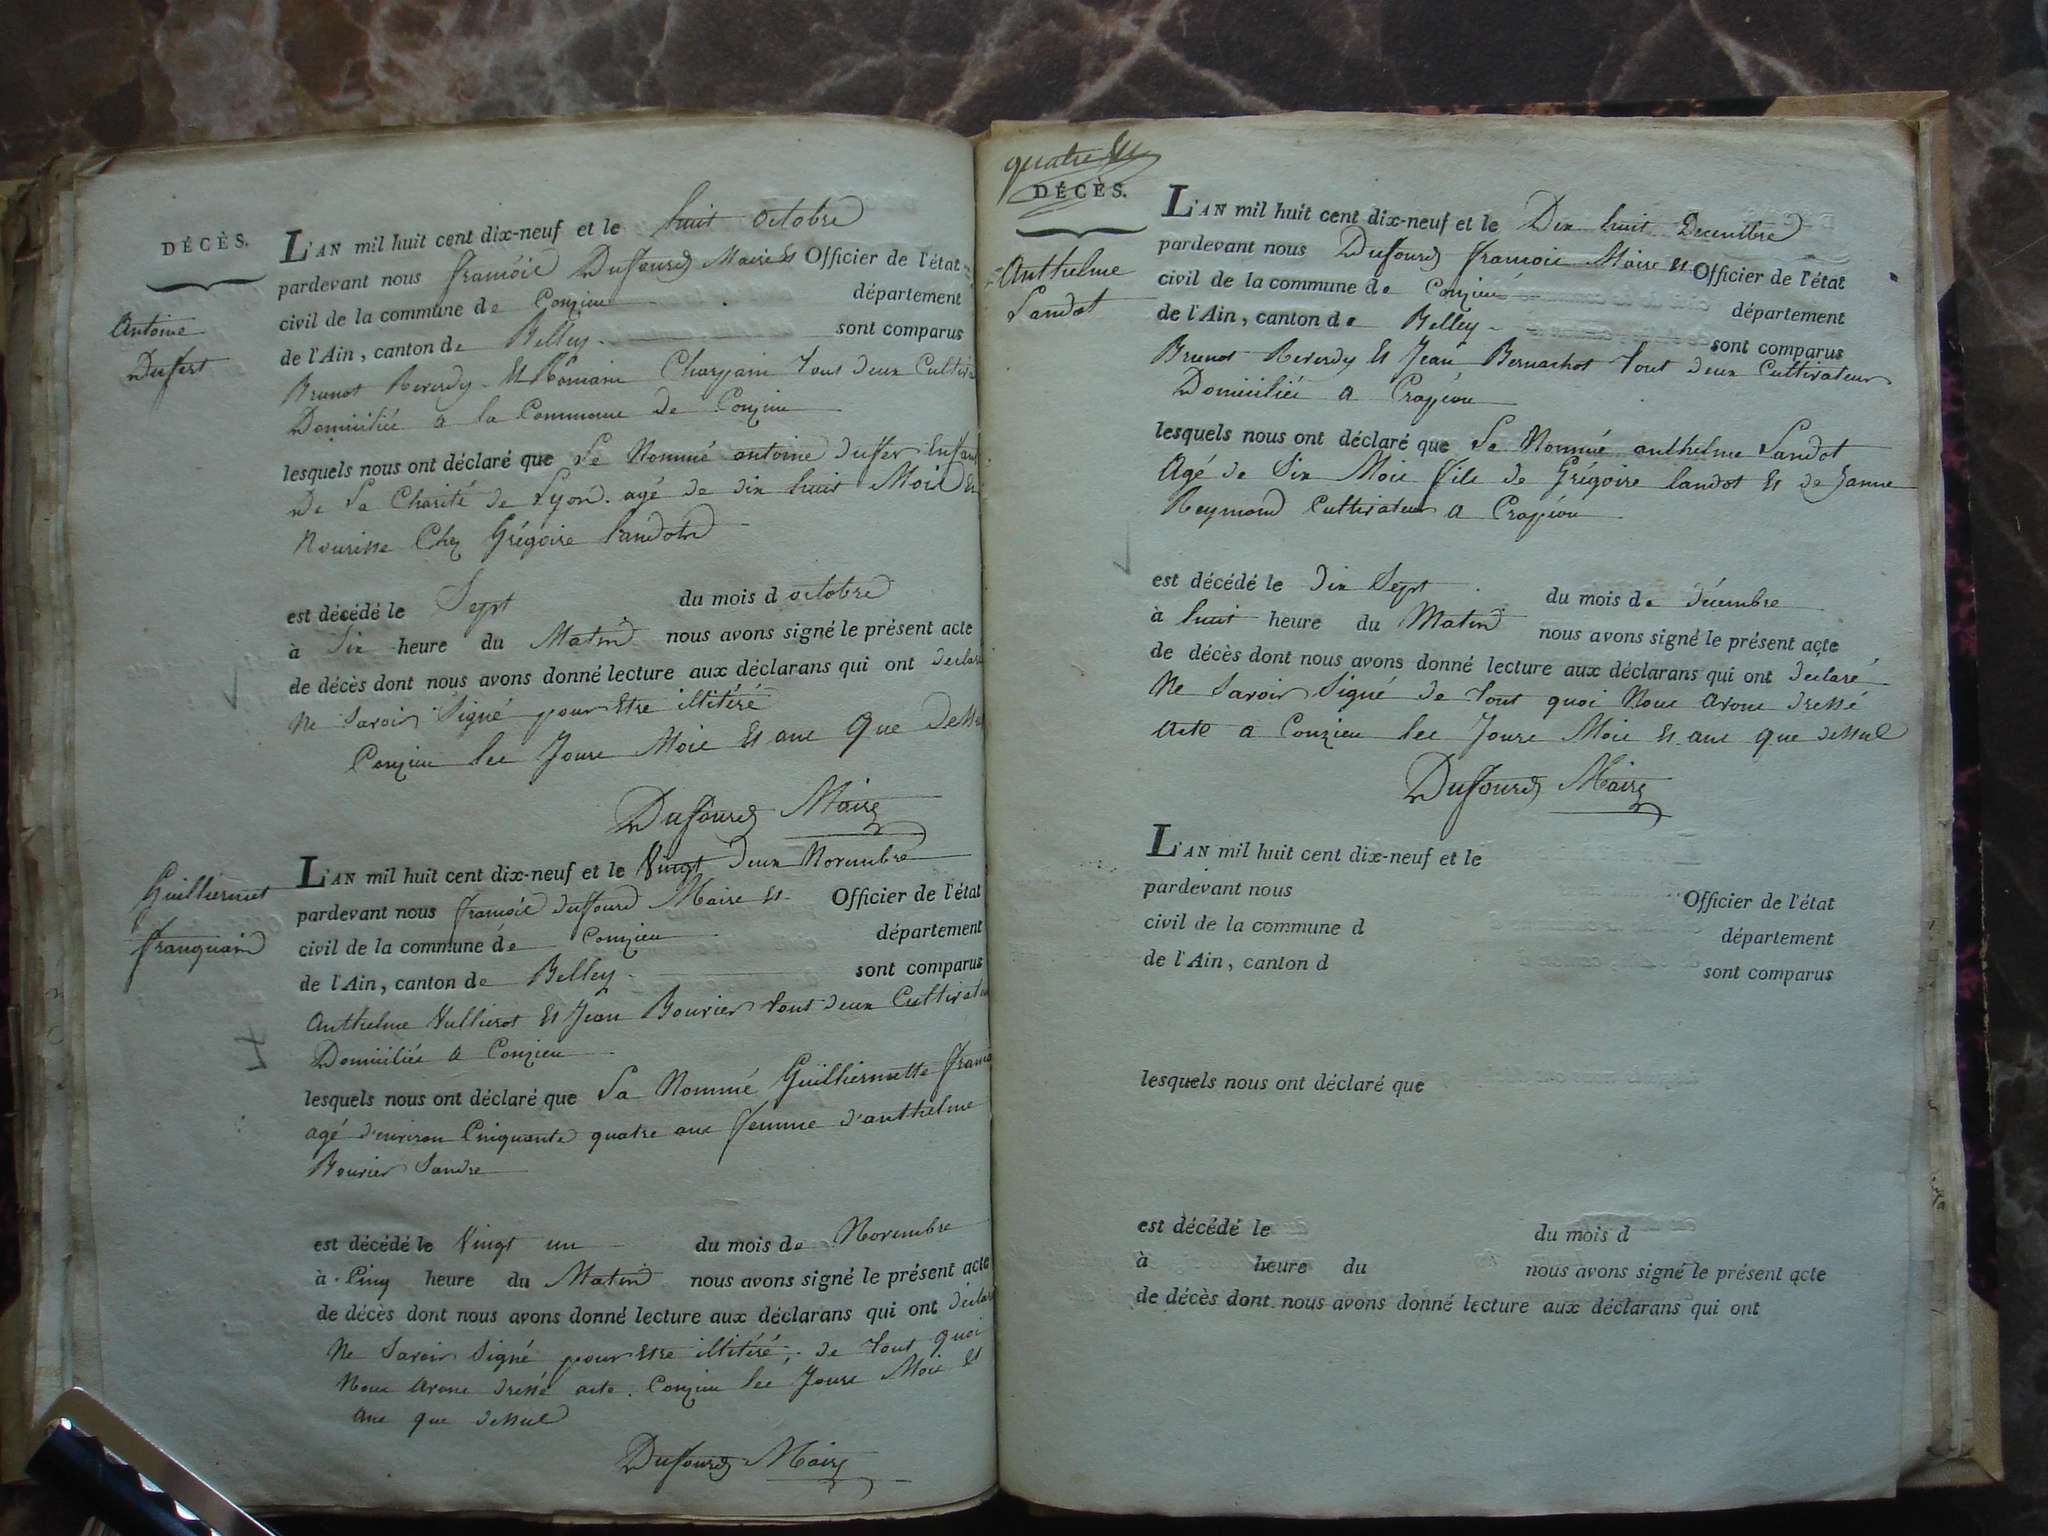 DÉCÈS.
Antoine
Dufert
L'AN mil huit cent dix-neuf et le huit octobre
pardevant nous françois Duffourd Maire Et Officier de l'état
civil de la commune de Conzieu département
de l'Ain, canton de Belley sont comparus
Brunot Reverdy Et Romain Charpin tout deux Cultiva
Domiciliée a la Commune de Conzieu
lesquels nous ont déclaré que Le Nommé antoine dufer Enfant
De La Charité de Lyon. agé de dix huit Mois En
Nourisse Chez Grégoire Landot
est décédé le Sept du mois d octobre
à Six heure du Matin nous avons signé le présent acte
de décès dont nous avons donné lecture aux déclarans qui ont declaré
Ne Savoir Signé pour Etre illitéré
Conzieu les Jours Mois Et ans Que Dessu
Duffourd Maire
Guilliermet
franquain
L'AN mil huit cent dix-neuf et le Vingt deux Novembre
pardevant nous françois duffourd Maire Et Officier de l'état
civil de la commune de Conzieu département
de l'Ain, canton de Belley sont comparus
Anthelme Vullierot Et Jean Bouvier tout deux Cultivate
Domiciliés a Conzieu
lesquels nous ont déclaré que La Nommé Guilliermette
agé d'environ Cinquante quatre ans femme d'anthelme
Bouvier Landre
est décédé le Vingt un du mois de Novembre
à Cinq heure du Matin nous avons signé le présent acte
de décès dont nous avons donné lecture aux déclarans qui ont declaré
Ne Savoir Signé pour Etre illitéré, de tout quoi
Nous avons dressé acte. Conzieu les Jours Mois Et
ans que dessus
Duffourd Maire
quatre
DÉCÈS.
Anthelme
Landot
L'AN mil huit cent dix-neuf et le Dix huit Decembre
pardevant nous Duffourd françois Maire Et Officier de l'état
civil de la commune de Conzieu département
de l'Ain, canton de Belley sont comparus
Brunot Reverdy Et Jean Bernachot tout deux Cultivateur
Domiciliés a Crapéou
lesquels nous ont déclaré que Le Nommé anthelme Landot
Agé de Six Mois fils de Grégoire landot Et de Janne
Reymond Cultivateur a Crapéou
est décédé le dix Sept du mois de décembre
à huit heure du Matin nous avons signé le présent acte
de décès dont nous avons donné lecture aux déclarans qui ont declaré
Ne Savoir Signé de tout quoi Nous avons dressé
acte a Conzieu les Jours Mois Et ans que dessus
Duffourd Maire
L'AN mil huit cent dix-neuf et le
pardevant nous Officier de l'état
civil de la commune d département
de l'Ain, canton d sont comparus
lesquels nous ont déclaré que
est décédé le du mois d
à heure du nous avons signé le présent acte
de décès dont nous avons donné lecture aux déclarans qui ont